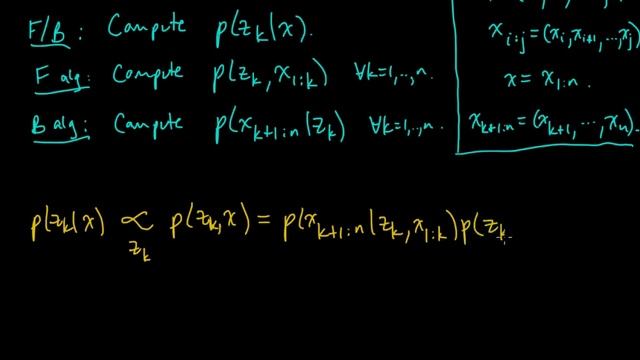 F/B: Compute p(z_k|x).
F alg: Compute p(z_k, x_{1:k}) ∀k=1,..,n.
B alg: Compute p(x_{k+1:n}|z_k) ∀k=1,..,n.
x_{i:j}=(x_i,x_{i+1},...,x_j)
x = x_{1:n}.
x_{k+1:n}=(x_{k+1},...,x_n).
p(z_k|x) ∝_{z_k} p(z_k,x) = p(x_{k+1:n}|z_k,x_{1:k})p(z_k